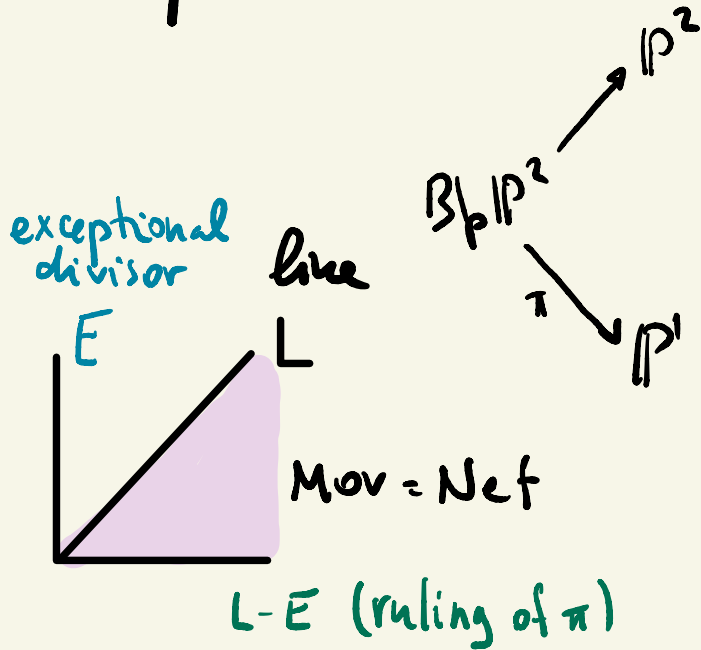 ℙ²
Bl_p ℙ²
π
ℙ¹
exceptional
divisor
E
line
L
Mov = Nef
L-E (ruling of π)